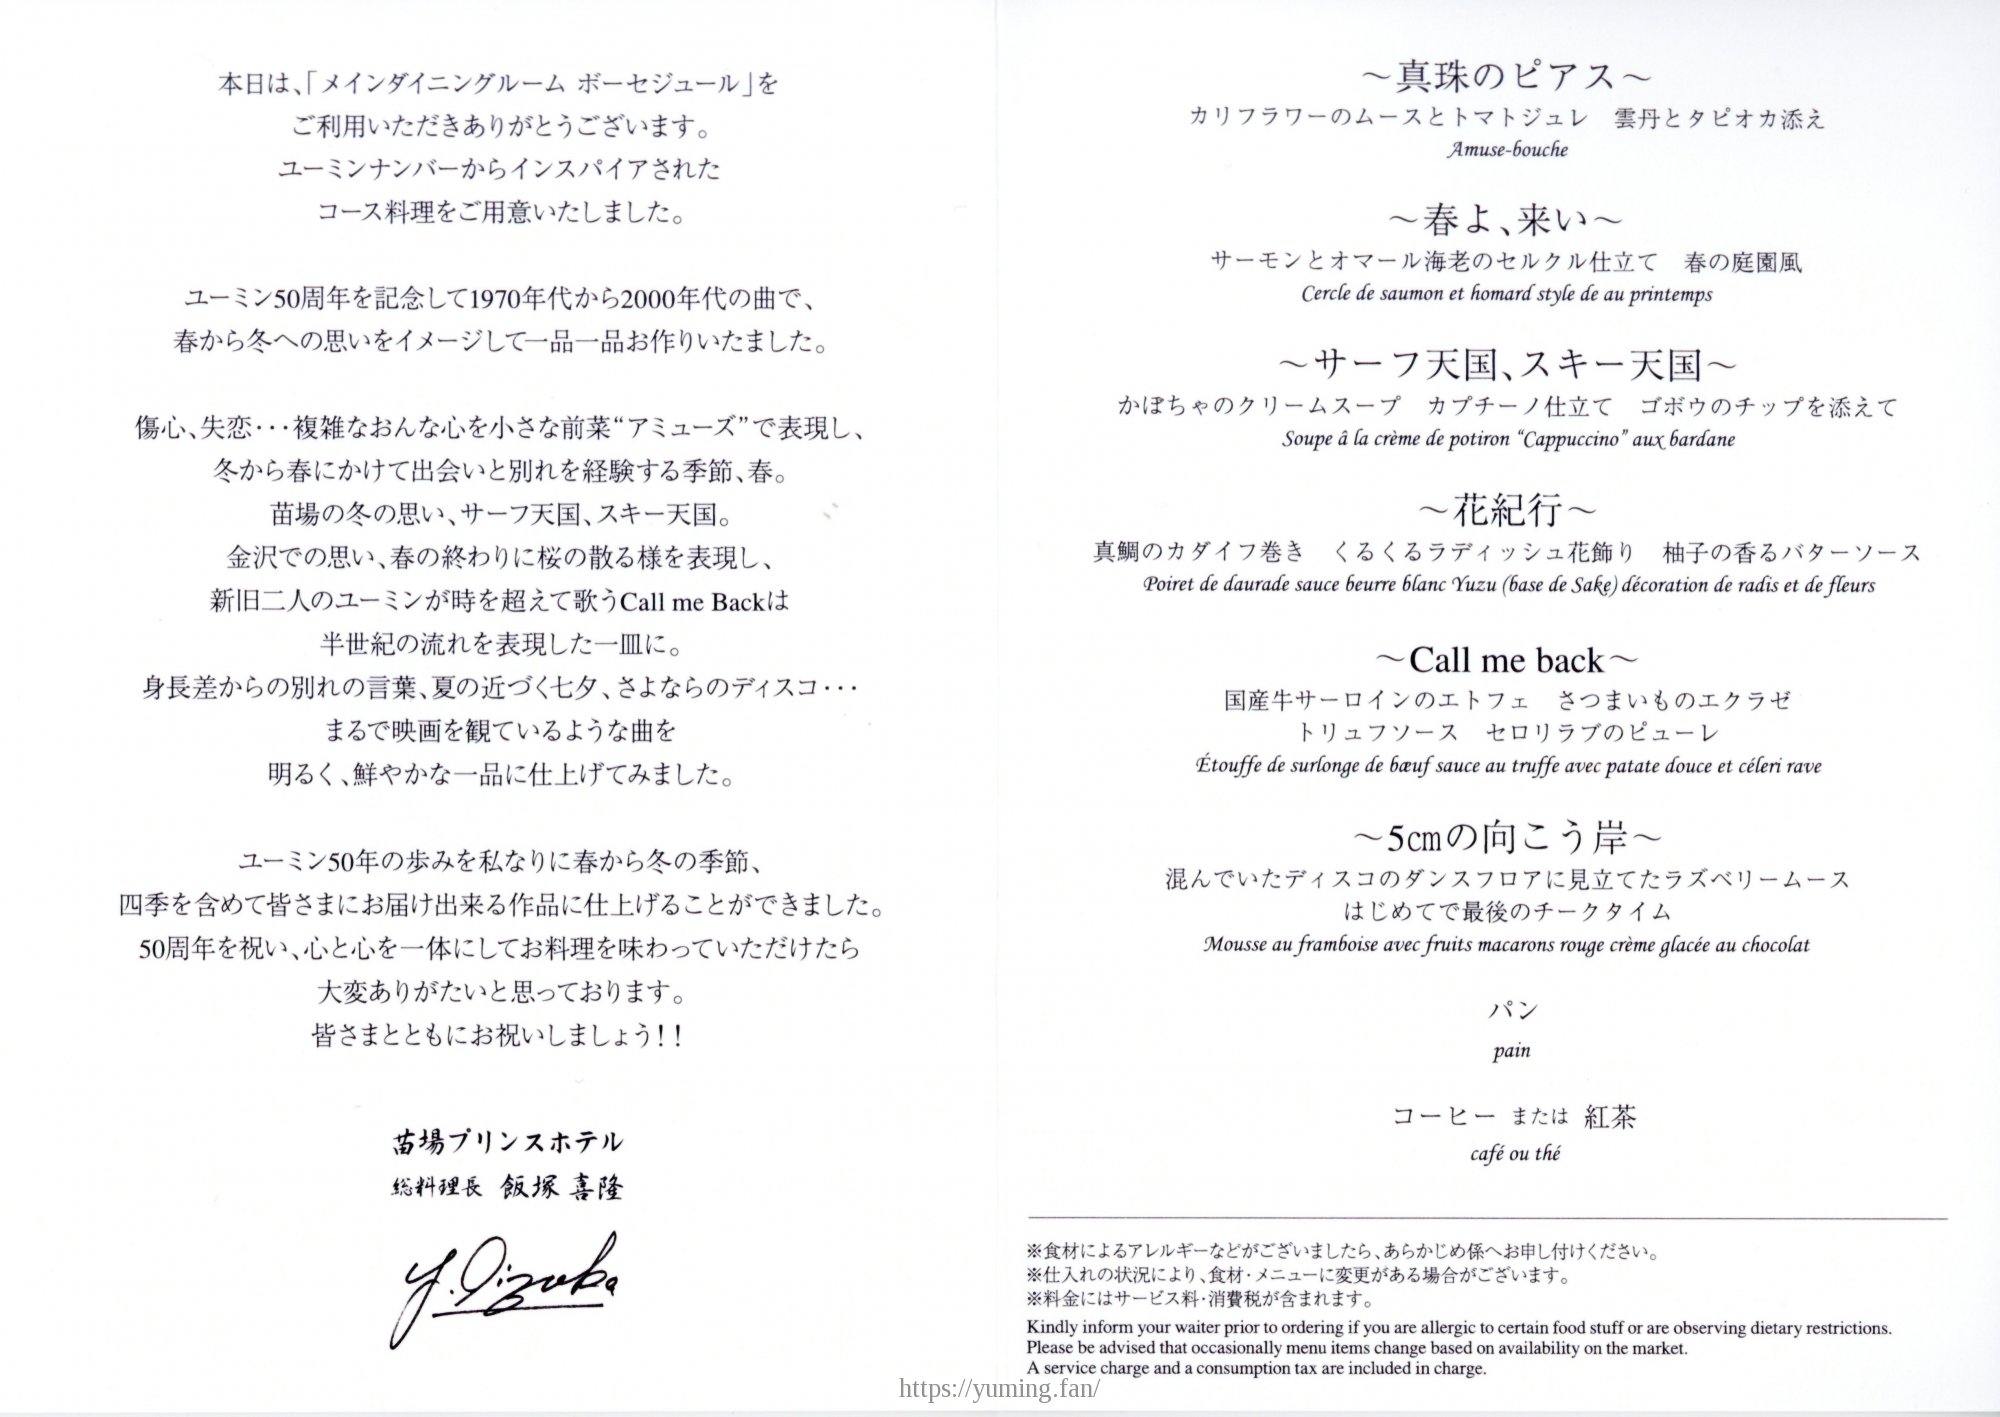 本日は、「メインダイニングルーム ボーセジュール」を
ご利用いただきありがとうございます。
ユーミンナンバーからインスパイアされた
コース料理をご用意いたしました。
ユーミン50周年を記念して1970年代から2000年代の曲で、
春から冬への思いをイメージして一品一品お作りいたました。
傷心、失恋･･･複雑なおんな心を小さな前菜“アミューズ”で表現し、
冬から春にかけて出会いと別れを経験する季節、春。
苗場の冬の思い、サーフ天国、スキー天国。
金沢での思い、春の終わりに桜の散る様を表現し、
新旧二人のユーミンが時を超えて歌うCall me Backは
半世紀の流れを表現した一皿に。
身長差からの別れの言葉、夏の近づく七夕、さよならのディスコ･･･
まるで映画を観ているような曲を
明るく、鮮やかな一品に仕上げてみました。
ユーミン50年の歩みを私なりに春から冬の季節、
四季を含めて皆さまにお届け出来る作品に仕上げることができました。
50周年を祝い、心と心を一体にしてお料理を味わっていただけたら
大変ありがたいと思っております。
皆さまとともにお祝いしましょう！！
苗場プリンスホテル
総料理長 飯塚 喜隆
Y. Iizuka
～真珠のピアス～
カリフラワーのムースとトマトジュレ　雲丹とタピオカ添え
Amuse-bouche
～春よ、来い～
サーモンとオマール海老のセルクル仕立て　春の庭園風
Cercle de saumon et homard style de au printemps
～サーフ天国、スキー天国～
かぼちゃのクリームスープ　カプチーノ仕立て　ゴボウのチップを添えて
Soupe â la crème de potiron “Cappuccino” aux bardane
～花紀行～
真鯛のカダイフ巻き　くるくるラディッシュ花飾り　柚子の香るバターソース
Poiret de daurade sauce beurre blanc Yuzu (base de Sake) décoration de radis et de fleurs
～Call me back～
国産牛サーロインのエトフェ　さつまいものエクラゼ
トリュフソース　セロリラブのピューレ
Étouffe de surlonge de bœuf sauce au truffe avec patate douce et céleri rave
～5㎝の向こう岸～
混んでいたディスコのダンスフロアに見立てたラズベリームース
はじめてで最後のチークタイム
Mousse au framboise avec fruits macarons rouge crème glacée au chocolat
パン
pain
コーヒー または 紅茶
café ou thé
※食材によるアレルギーなどがございましたら、あらかじめ係へお申し付けください。
※仕入れの状況により、食材･メニューに変更がある場合がございます。
※料金にはサービス料･消費税が含まれます。
Kindly inform your waiter prior to ordering if you are allergic to certain food stuff or are observing dietary restrictions.
Please be advised that occasionally menu items change based on availability on the market.
A service charge and a consumption tax are included in charge.
https://yuming.fan/